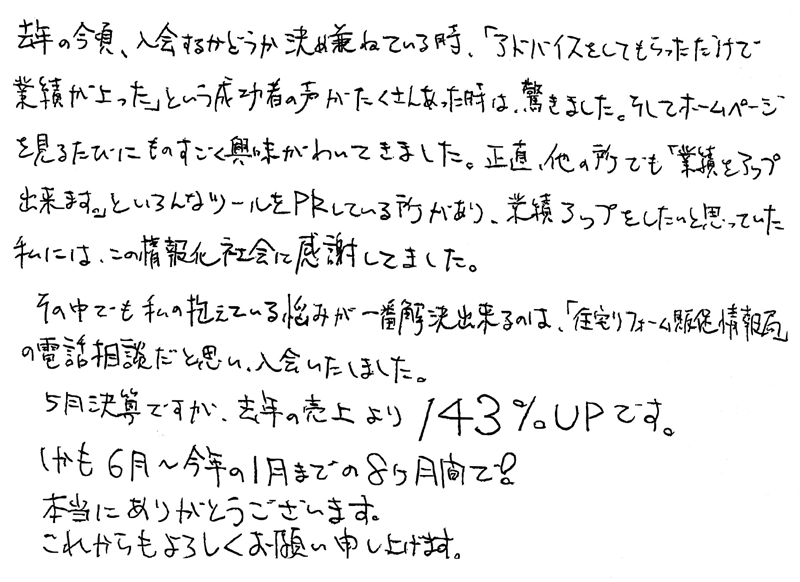 去年の今頃、入会するかどうか決め兼ねている時、「アドバイスをしてもらっただけで
業績が上った」という成功者の声がたくさんあった時は、驚きました。そしてホームページ
を見るたびにものすごく興味がわいてきました。正直、他の所でも「業績をアップ
出来ます。」といろんなツールをPRしている所があり、業績アップをしたいと思っていた
私には、この情報化社会に感謝してました。
その中でも私の抱えている悩みが一番解決出来るのは、「住宅リフォーム販促情報局」
の電話相談だと思い、入会いたしました。
5月決算ですが、去年の売上より143%UPです。
しかも6月〜今年の1月までの8ヶ月間で!?
本当にありがとうございます。
これからもよろしくお願い申し上げます。